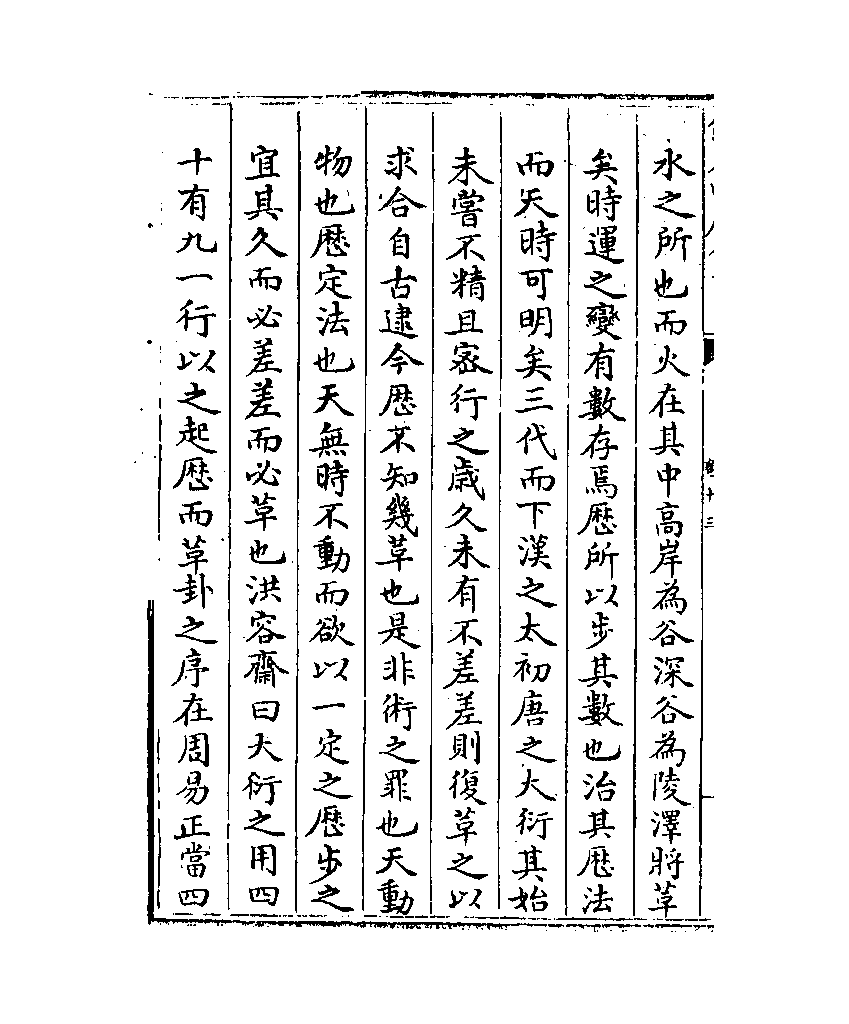 水之所也而火在其中高岸為谷深谷為陵澤將草
矣時運之變有數存焉歴所以步其數也治其歴法
而天時可明矣三代而下漢之太初唐之大衍其始
未嘗不精且宻行之歳久未有不差差則復草之以
求合自古逮今歴不知幾草也是非術之罪也天動
物也歴定法也天無時不動而欲以一定之歴步之
宜其久而必差差而必草也洪容齋曰大衍之用四
十有九一行以之起歴而草卦之序在周易正當四